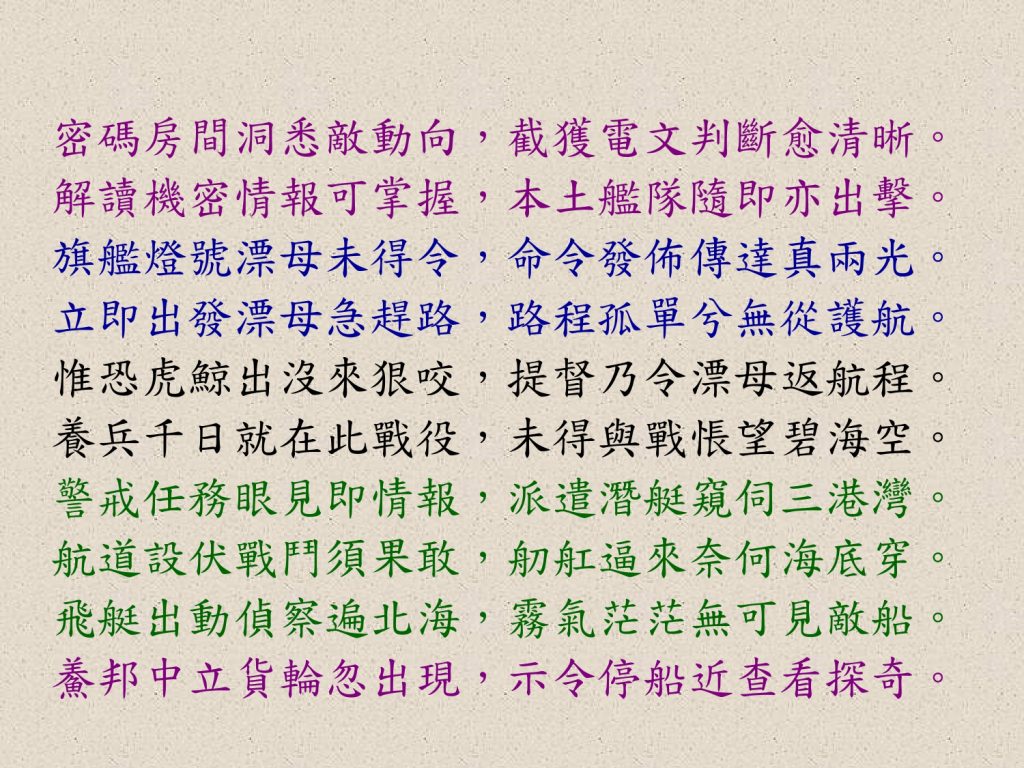 密碼房間洞悉敵動向，截獲電文判斷愈清晰。
解讀機密情報可掌握，本土艦隊隨即亦出擊。
旗艦燈號漂母未得令，命令發佈傳達真兩光。
立即出發漂母急趕路，路程孤單兮無從護航。
惟恐虎鯨出沒來狠咬，提督乃令漂母返航程。
養兵千日就在此戰役，未得與戰悵望碧海空。
警戒任務眼見即情報，派遣潛艇窺伺三港灣。
航道設伏戰鬥須果敢，舠舡逼來奈何海底穿。
飛艇出動偵察遍北海，霧氣茫茫無可見敵船。
鮝邦中立貨輪忽出現，示令停船近查看探奇。